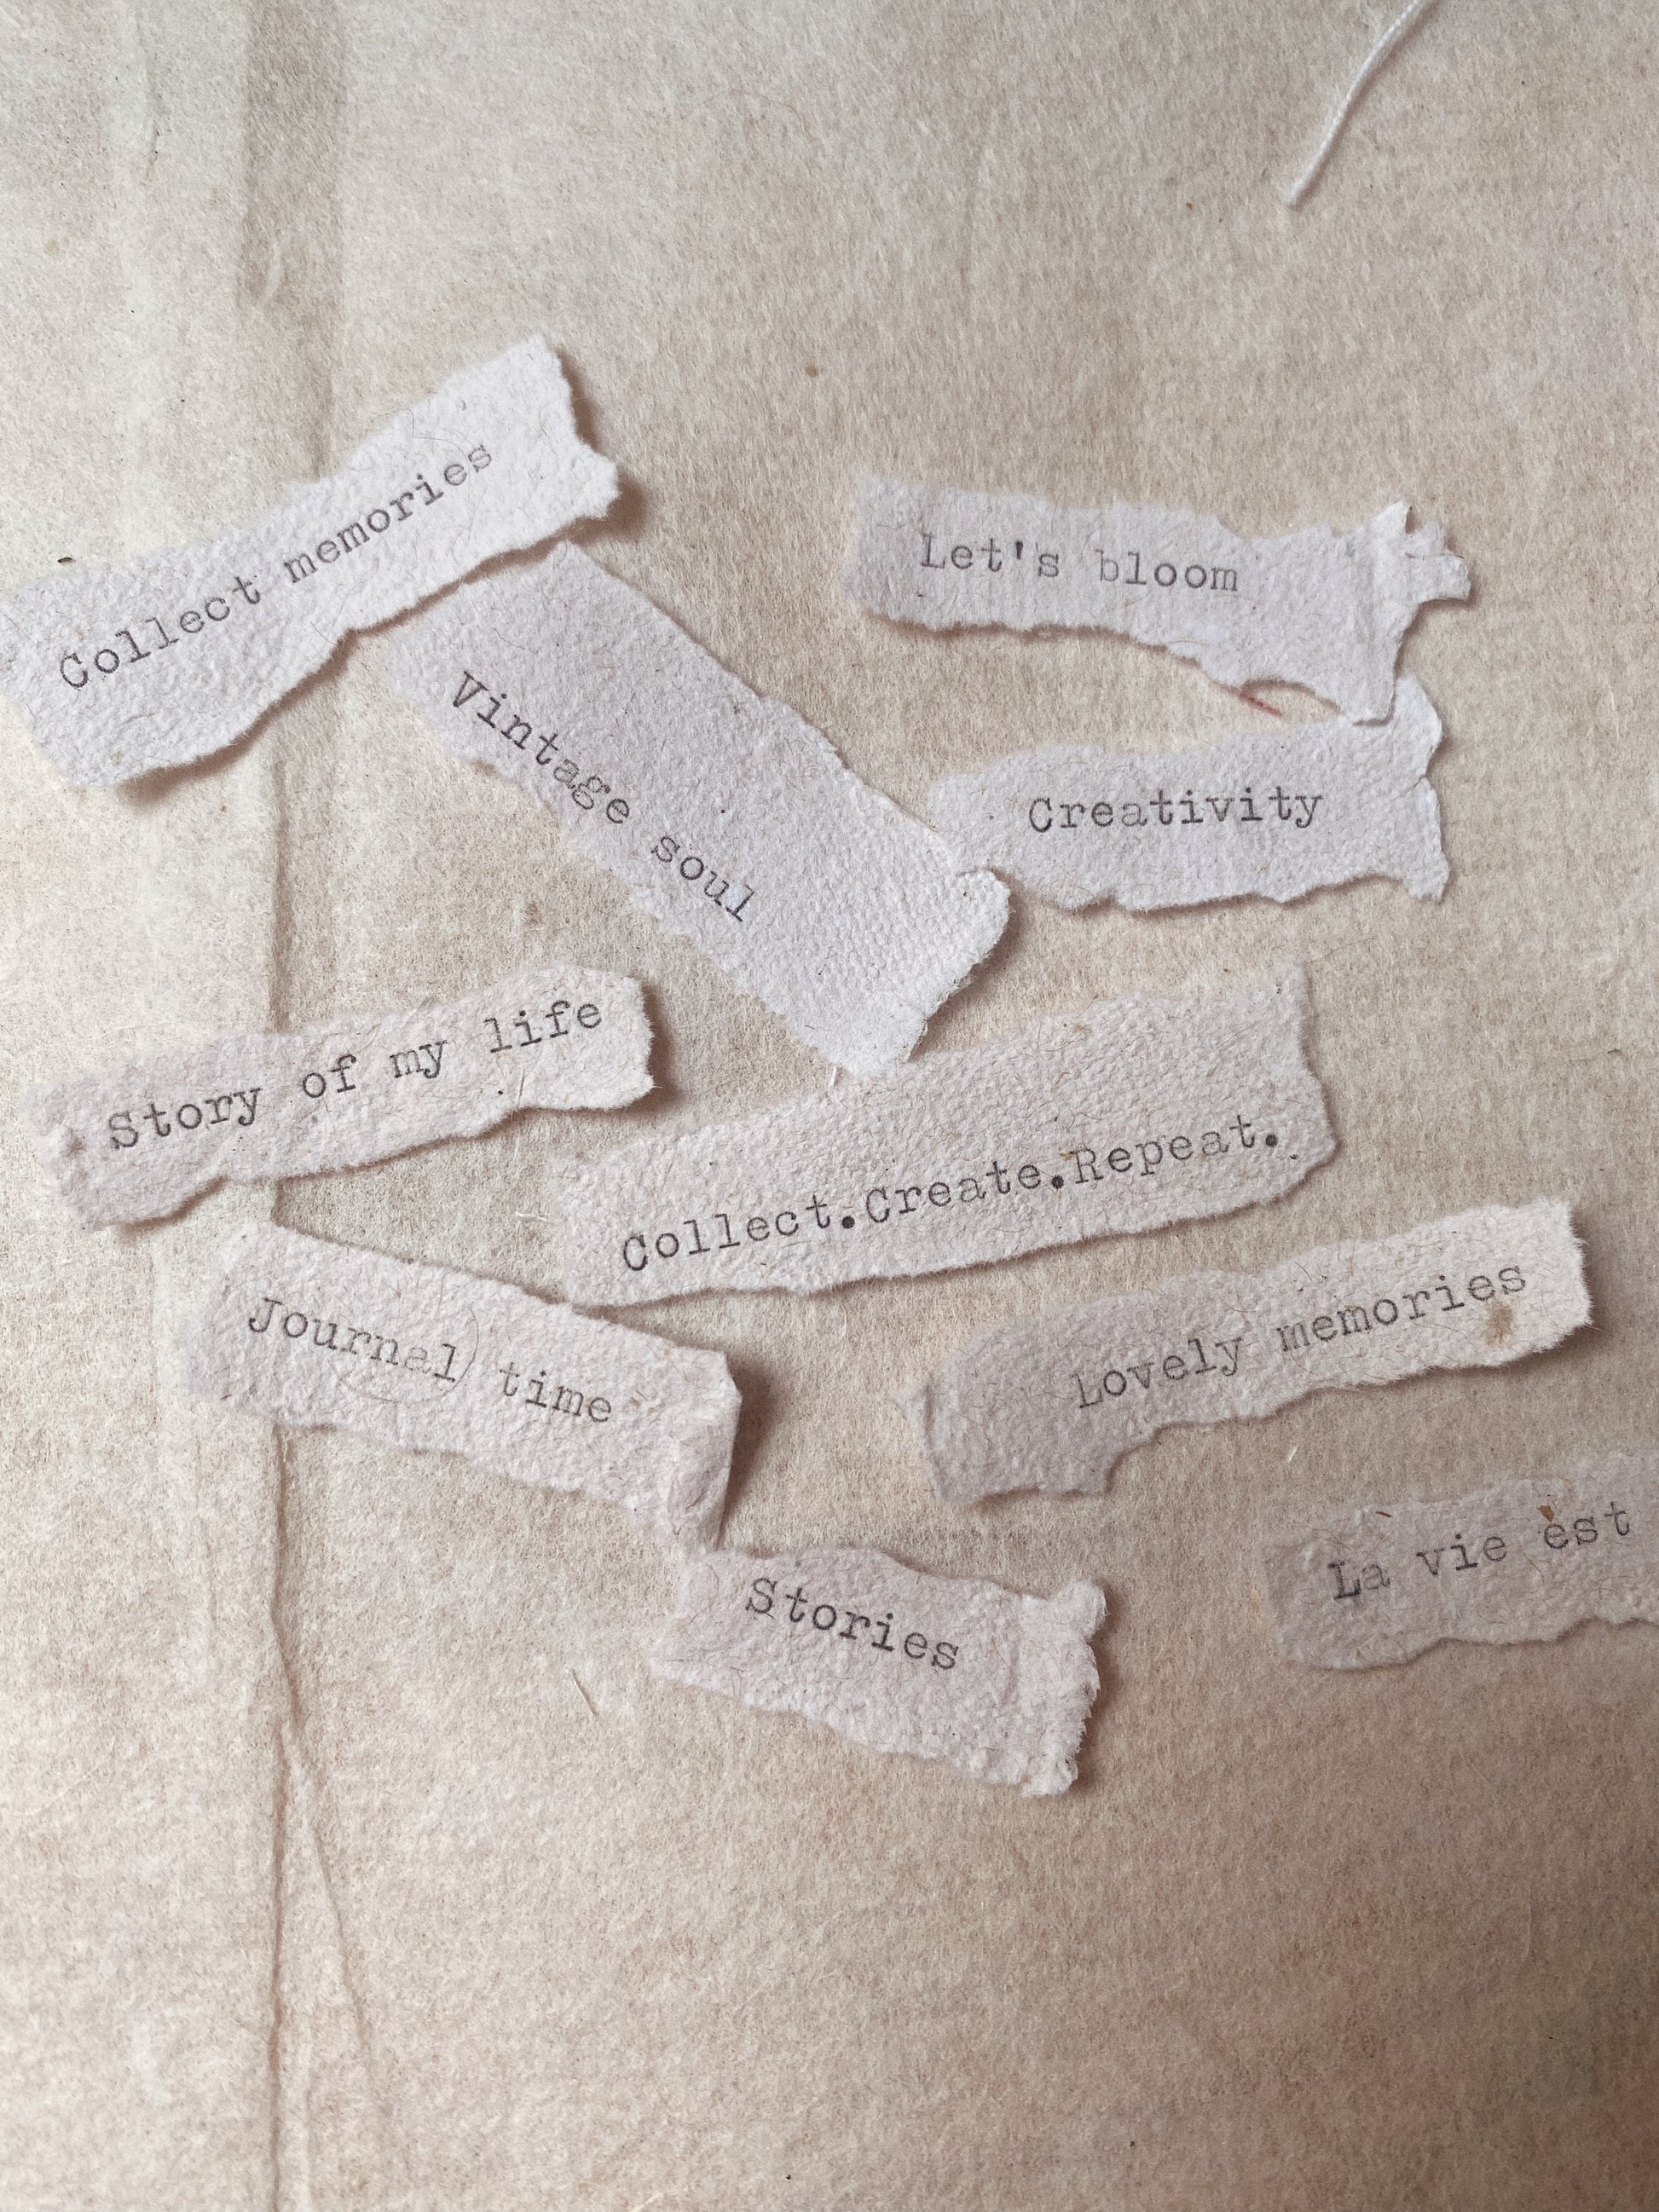 Collect memories
Let's bloom
Vintage soul
Creativity
Story of my life
Collect.Create.Repeat.
Journal time
Lovely memories
La vie est
Stories